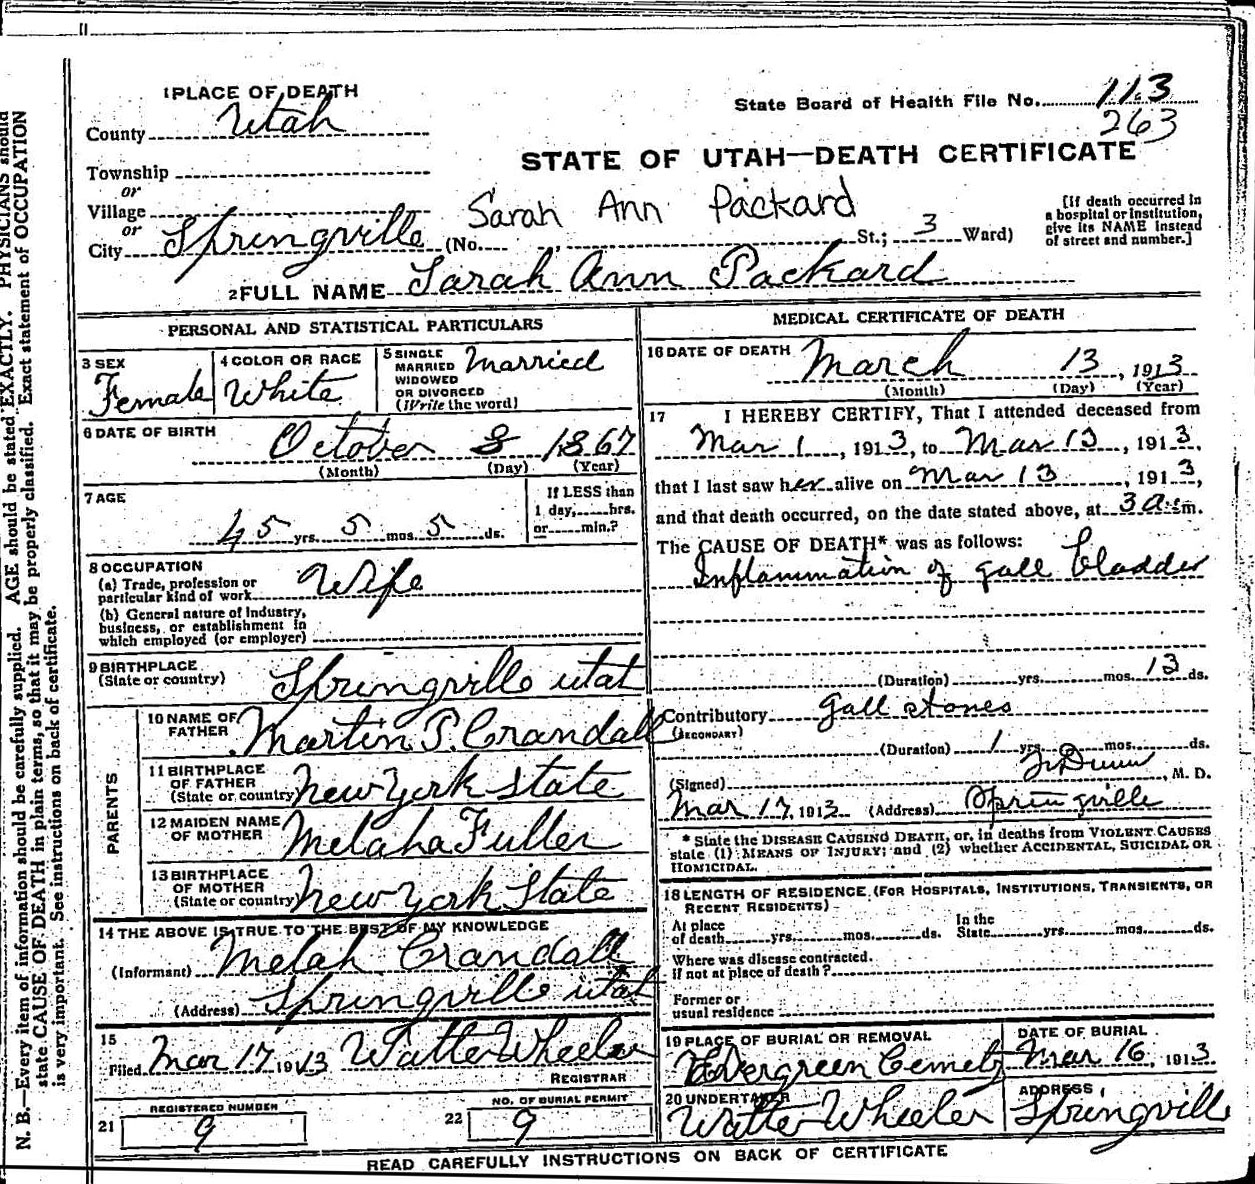 1 PLACE OF DEATH
County Utah
State Board of Health File No. 113
263
STATE OF UTAH—DEATH CERTIFICATE
Township
or
Village
or
City Springville (No. St.; 3 Ward)
Sarah Ann Packard
[If death occurred in
a hospital or institution,
give its NAME instead
of street and number.]
2 FULL NAME Sarah Ann Packard
PERSONAL AND STATISTICAL PARTICULARS
3 SEX
Female
4 COLOR OR RACE
White
5 SINGLE
MARRIED
WIDOWED
OR DIVORCED
(Write the word)
Married
6 DATE OF BIRTH
October 8 1867
(Month) (Day) (Year)
7 AGE
45 yrs. 5 mos. 5 ds.
If LESS than
1 day, hrs.
or min.?
8 OCCUPATION
(a) Trade, profession or
particular kind of work Wife
(b) General nature of Industry,
business, or establishment in
which employed (or employer)
9 BIRTHPLACE
(State or country) Springville utah
PARENTS
10 NAME OF
FATHER Martin P. Crandall
11 BIRTHPLACE
OF FATHER
(State or country) New York State
12 MAIDEN NAME
OF MOTHER Melaha Fuller
13 BIRTHPLACE
OF MOTHER
(State or country) New York State
14 THE ABOVE IS TRUE TO THE BEST OF MY KNOWLEDGE
(Informant) Melah Crandall
(Address) Springville utah
15
Filed Mar 17 1913 Walter Wheeler
REGISTRAR
REGISTERED NUMBER
21 9
NO. OF BURIAL PERMIT
22 9
MEDICAL CERTIFICATE OF DEATH
16 DATE OF DEATH March 13, 1913
(Month) (Day) (Year)
17 I HEREBY CERTIFY, That I attended deceased from
Mar 1, 1913, to Mar 13, 1913,
that I last saw her alive on Mar 13, 1913,
and that death occurred, on the date stated above, at 3 a.m.
The CAUSE OF DEATH* was as follows:
Inflammation of gall bladder
(Duration) yrs. mos. 13 ds.
Contributory Gall stones
(SECONDARY)
(Duration) 1 yrs. mos. ds.
(Signed) Dunn, M. D.
Mar 17, 1913 (Address) Springville
* State the DISEASE CAUSING DEATH, or, in deaths from VIOLENT CAUSES
state (1) MEANS OF INJURY; and (2) whether ACCIDENTAL, SUICIDAL OR
HOMICIDAL.
18 LENGTH OF RESIDENCE (FOR HOSPITALS, INSTITUTIONS, TRANSIENTS, OR
RECENT RESIDENTS)
At place
of death yrs. mos. ds.
In the
State yrs. mos. ds.
Where was disease contracted,
if not at place of death?
Former or
usual residence
19 PLACE OF BURIAL OR REMOVAL
Evergreen Cemety
DATE OF BURIAL
Mar 16, 1913.
20 UNDERTAKER
Walter Wheeler
ADDRESS
Springville
READ CAREFULLY INSTRUCTIONS ON BACK OF CERTIFICATE
N. B.—Every item of information should be carefully supplied. AGE should be stated EXACTLY. PHYSICIANS should
state CAUSE OF DEATH in plain terms, so that it may be properly classified. Exact statement of OCCUPATION
is very important. See instructions on back of certificate.